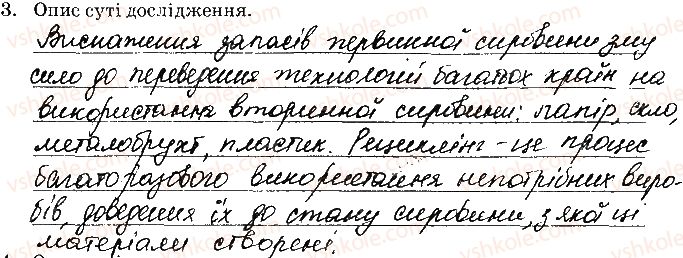 3. Опис суті дослідження.
Виснаження запасів первинної сировини зму
сило до переведення технологій багатох країн на
використання вторинної сировини: папір, скло,
металобрухт, пластик. Рециклінг - це процес
багаторазового використання непотрібних виро-
бів, доведення їх до стану сировини, з якої ці
матеріали створені.